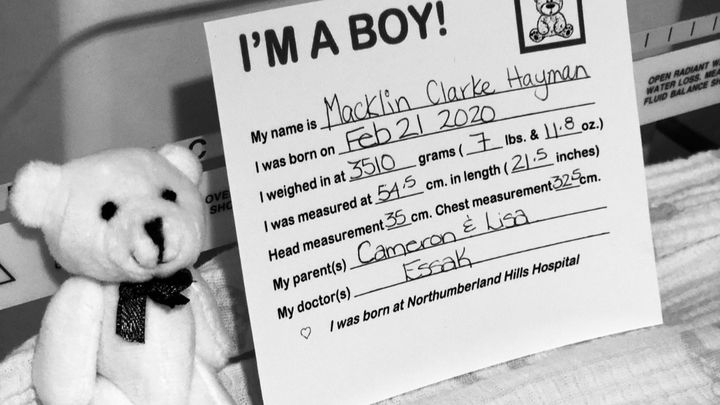 I'M A BOY!
My name is Macklin Clarke Hayman
I was born on Feb 21 2020
I weighed in at 3510 grams ( 7 lbs. & 11.8 oz.)
I was measured at 54.5 cm. in length ( 21.5 inches)
Head measurement 35 cm. Chest measurement 32.5 cm.
My parent(s) Cameron & Lisa
My doctor(s) Essak
♡ I was born at Northumberland Hills Hospital
C
OPEN RADIANT
WATER LOSS.
FLUID BALANCE